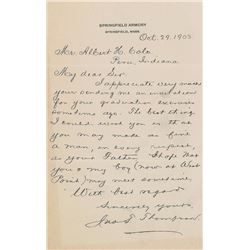 SPRINGFIELD ARMORY
SPRINGFIELD, MASS.
Oct. 29. 1903
Mr. Albert H. Cole
Peru, Indiana
My dear Sir
I appreciate very much
your sending me an invitation
for your graduation exercises
sometime ago. The best thing
I could wish you is that
you may make as fine
a man, in every respect,
as your Father. I hope that
you & my boy (now at West
Point) may meet sometime.
With best regard
Sincerely yours,
Jno. T. Thompson